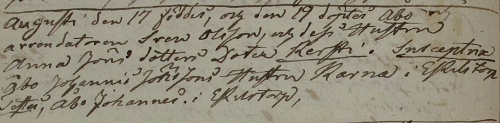 Augusti den 17 föddes, och den 19 döptes Åbo och
arrendatoren Sven Olsson, och dess Hustru
Anna Jöns dotters Doter Kersti. Susceptrix
åbo Johannis Hustru Karna i Eskilstorp
Testes, Åbo Johannes i Eskilstorp,